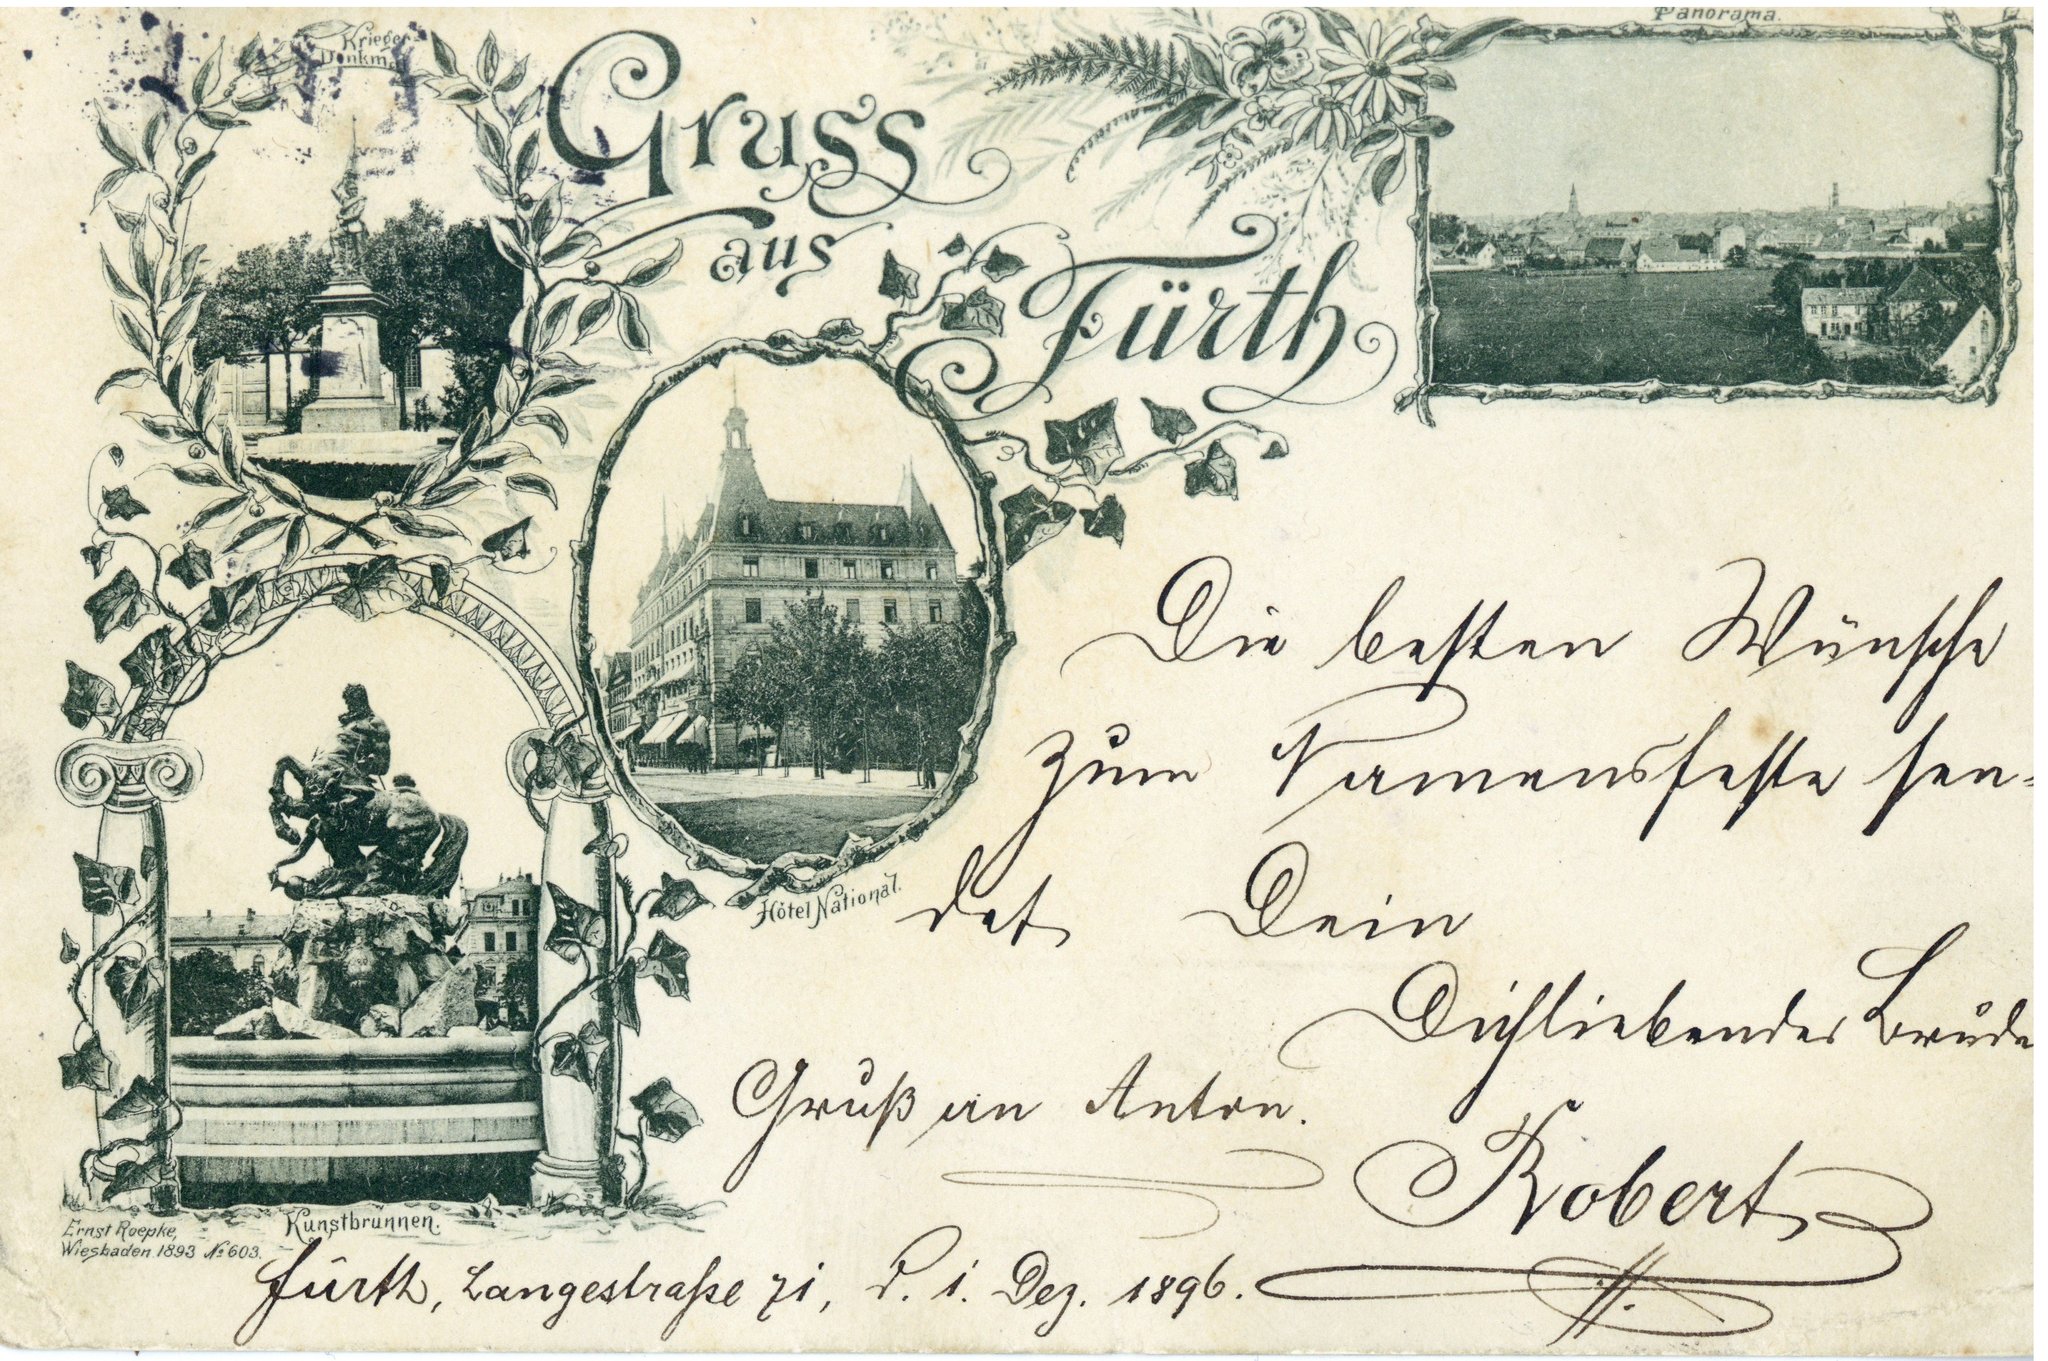 Krieger
Denkmal
Gruss
aus
Fürth
Panorama.
Hôtel National.
Kunstbrunnen.
Ernst Roepke,
Wiesbaden 1893 № 603.
Die besten Wünsche
zum Namensfeste sen-
det Dein
Dichliebender Brude
Gruß an Anton.
Robert
Fürth, Langestraße 71, d. 1. Dez. 1896.